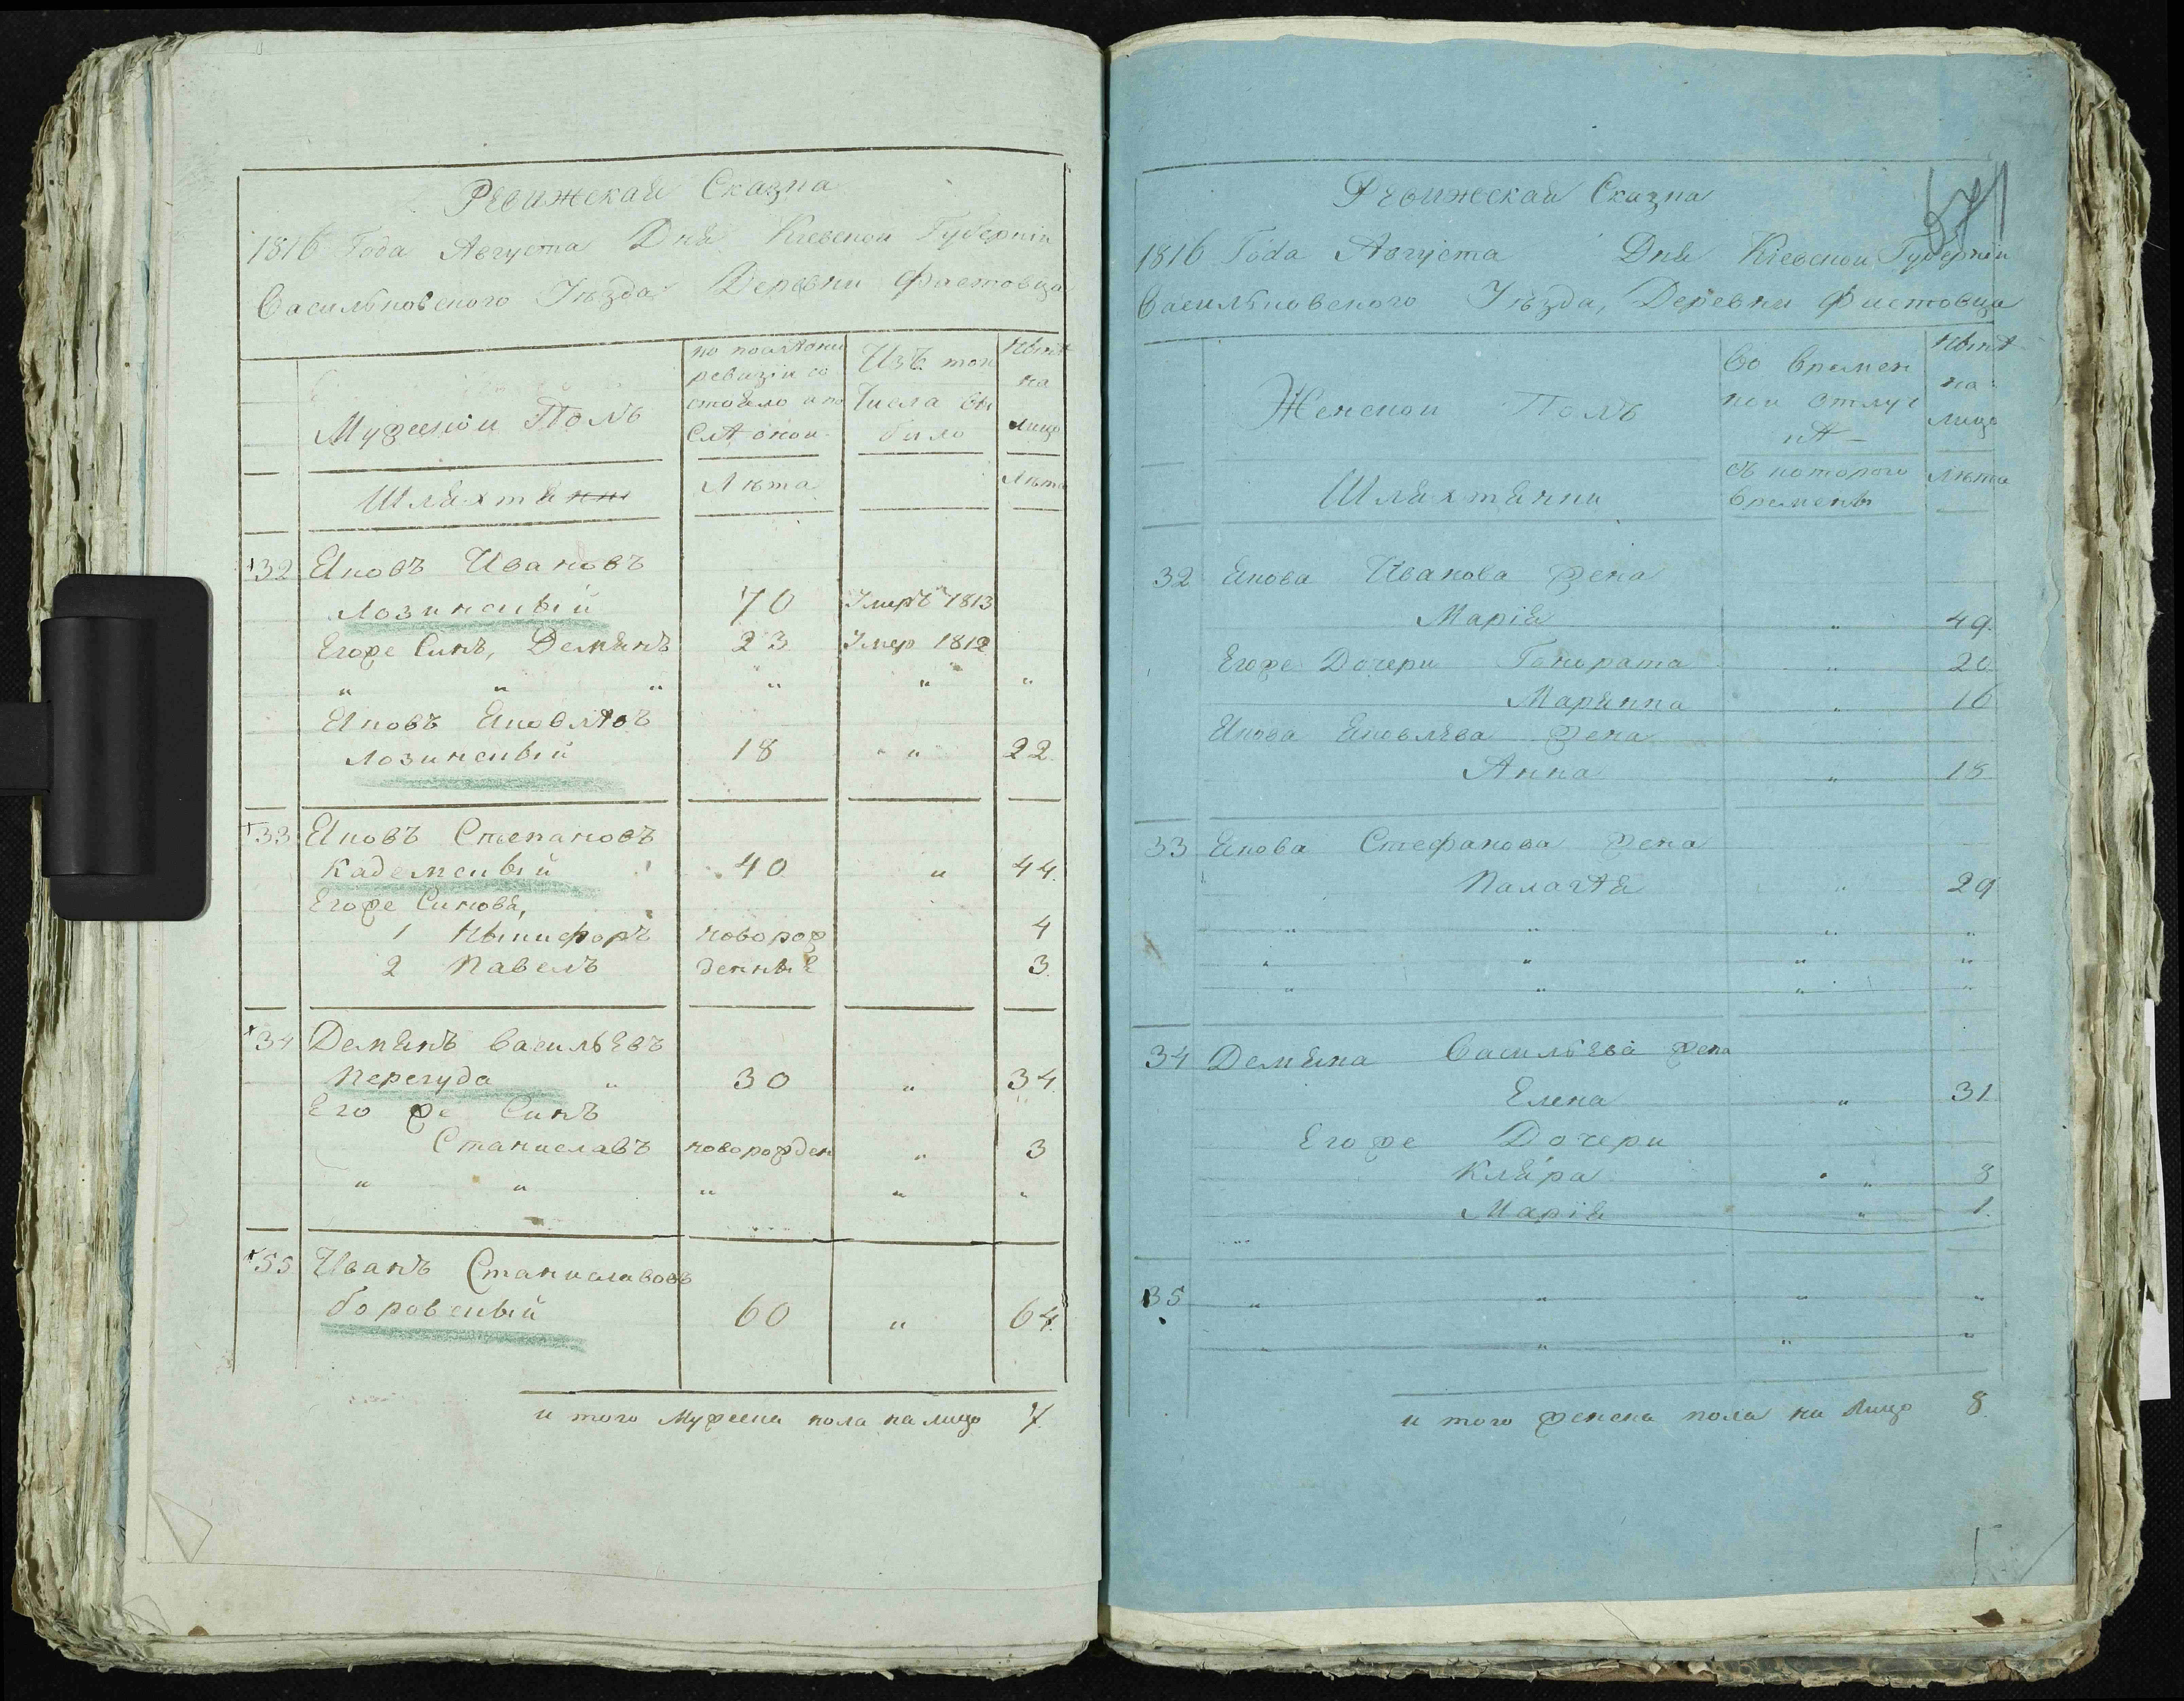 Ревижская Сказка
1816 Года Августа Дня Киевской Губернии
Васильковского Уѣзда Деревни Фастовца
Мужеской Полъ
по послѣдни
ревизіи со
стояло и по
слѣ оной
Изъ того
Числа вы
было
Нынѣ
на
лицо
Шляхтянки
Лѣта
Лѣта
32 Яковъ Ивановъ
Лозинскый 70 Умеръ 1813
Егоже Синъ, Демянъ 23 Умер 1812
" " " " " "
Яковъ Яковлѣвъ
Лозинскый 18 " 22
33 Яковъ Степановъ
Кадемскый 40 " 44.
Егоже Синовя,
1 Ныкифоръ новорож 4
2 Павелъ денные 3.
34 Демянъ Васильевъ
Перегуда " 30 " 34
Его же Синъ
Станиславъ новорожден " 3
" " " " "
35 Иванъ Станиславовъ
боровскый 60 " 64.
и того Мужеска пола на лицо 7.
571
Ревижская Сказка
1816 Года Августа Дня Киевской Губернии
Васильковского Уѣзда, Деревни Фастовца
Женской Полъ
Во времен
ной отлуч
кѣ
Нынѣ
на
лицо
Шляхтянки
съ которого
времены
Лѣта
32 Якова Иванова жена
Марія " 49.
Егоже Дочери Гонората " 20
Марянна " 16
Якова Яковлева жена
Анна " 18
33 Якова Стефанова жена
Палагѣя " 29
" " " "
" " " "
" " " "
34 Демяна Васильева жена
Елена " 31
Егоже Дочери
Кляра " 8
Марія " 1.
35 " " " "
" " " "
и того женска пола на лицо 8.